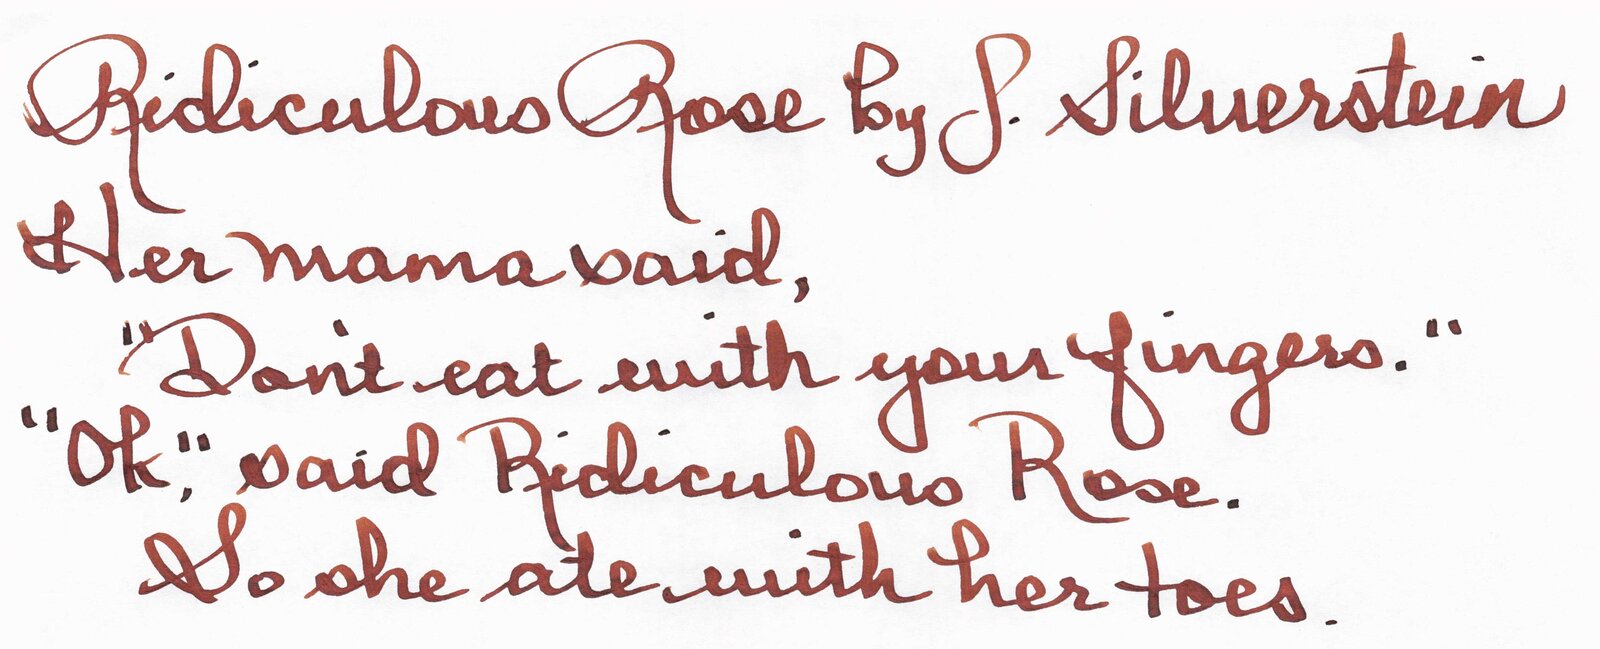 Ridiculous Rose by S. Silverstein
Her mama said,
"Don't eat with your fingers."
"Ok," said Ridiculous Rose.
So she ate with her toes.